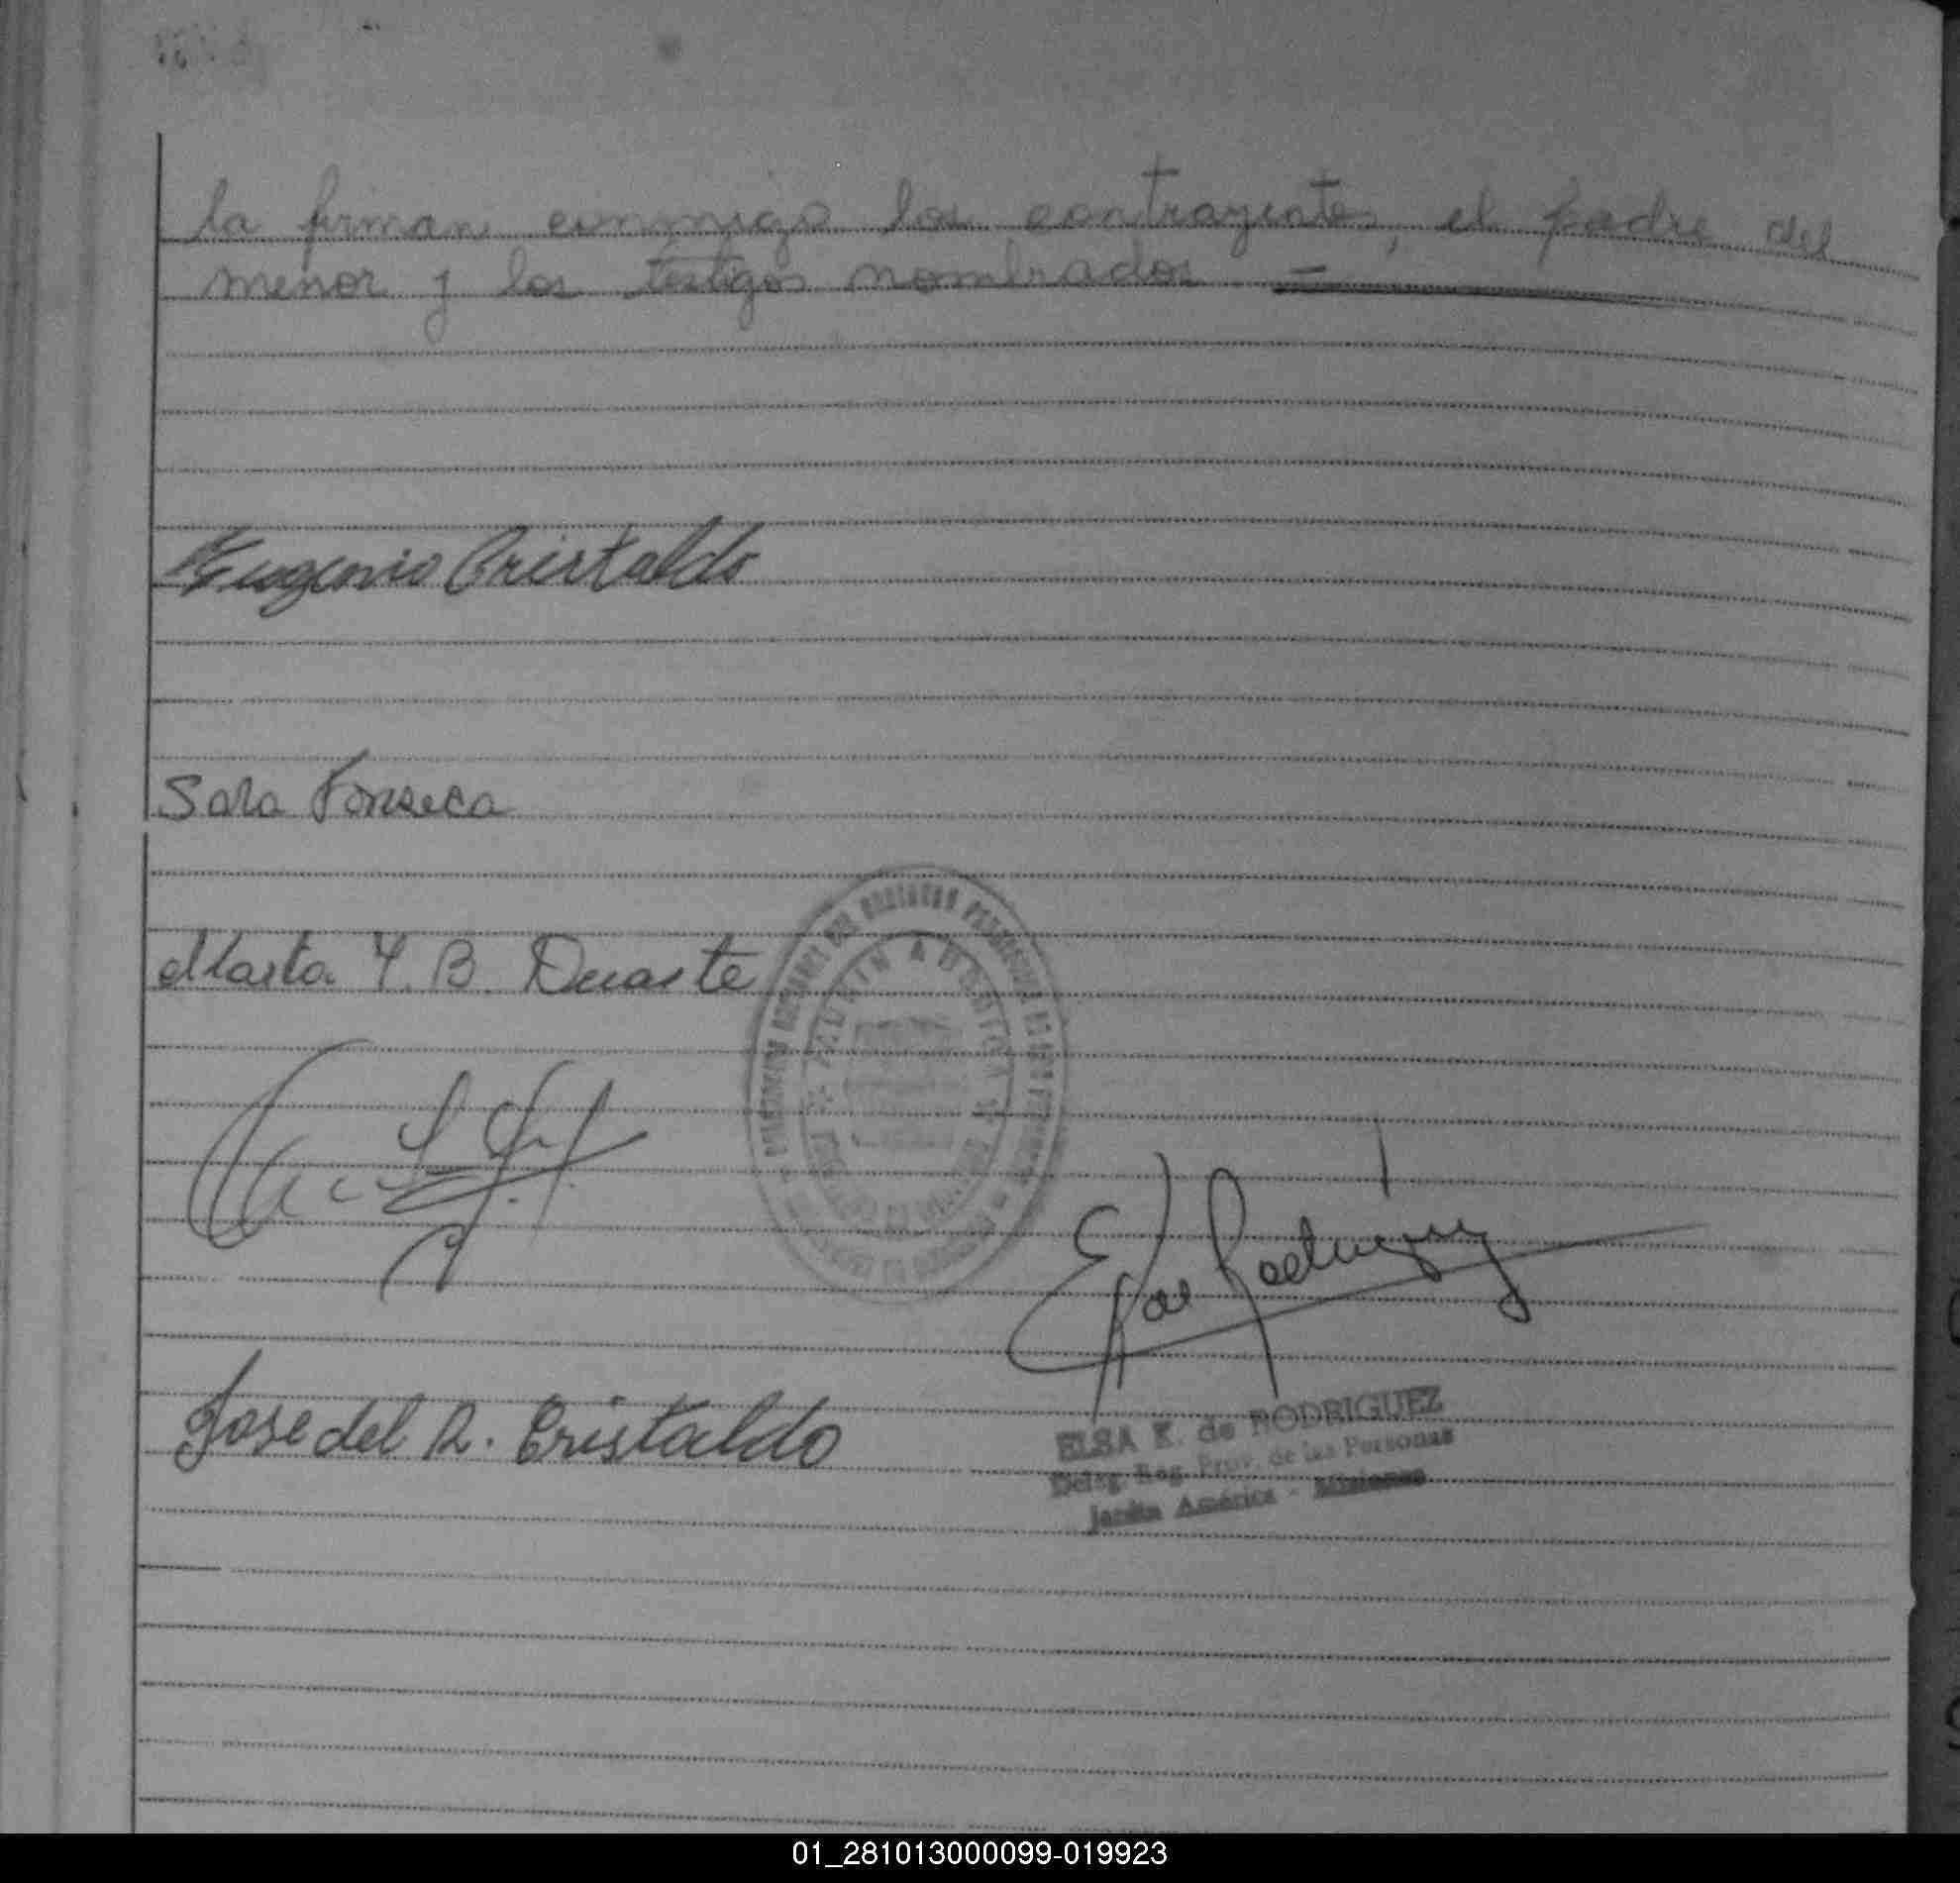 la firman conmigo los contrayentes, el padre del
menor y los testigos nombrados. —
Eugenio Cristaldo
Sara Fonseca
Marta Y. B. Duarte
JARDIN AMERICA
Elsa Rodriguez
Jose del R. Cristaldo
ELSA K. de RODRIGUEZ
Deleg. Reg. Prov. de las Personas
Jardín América - Misiones
01_281013000099-019923